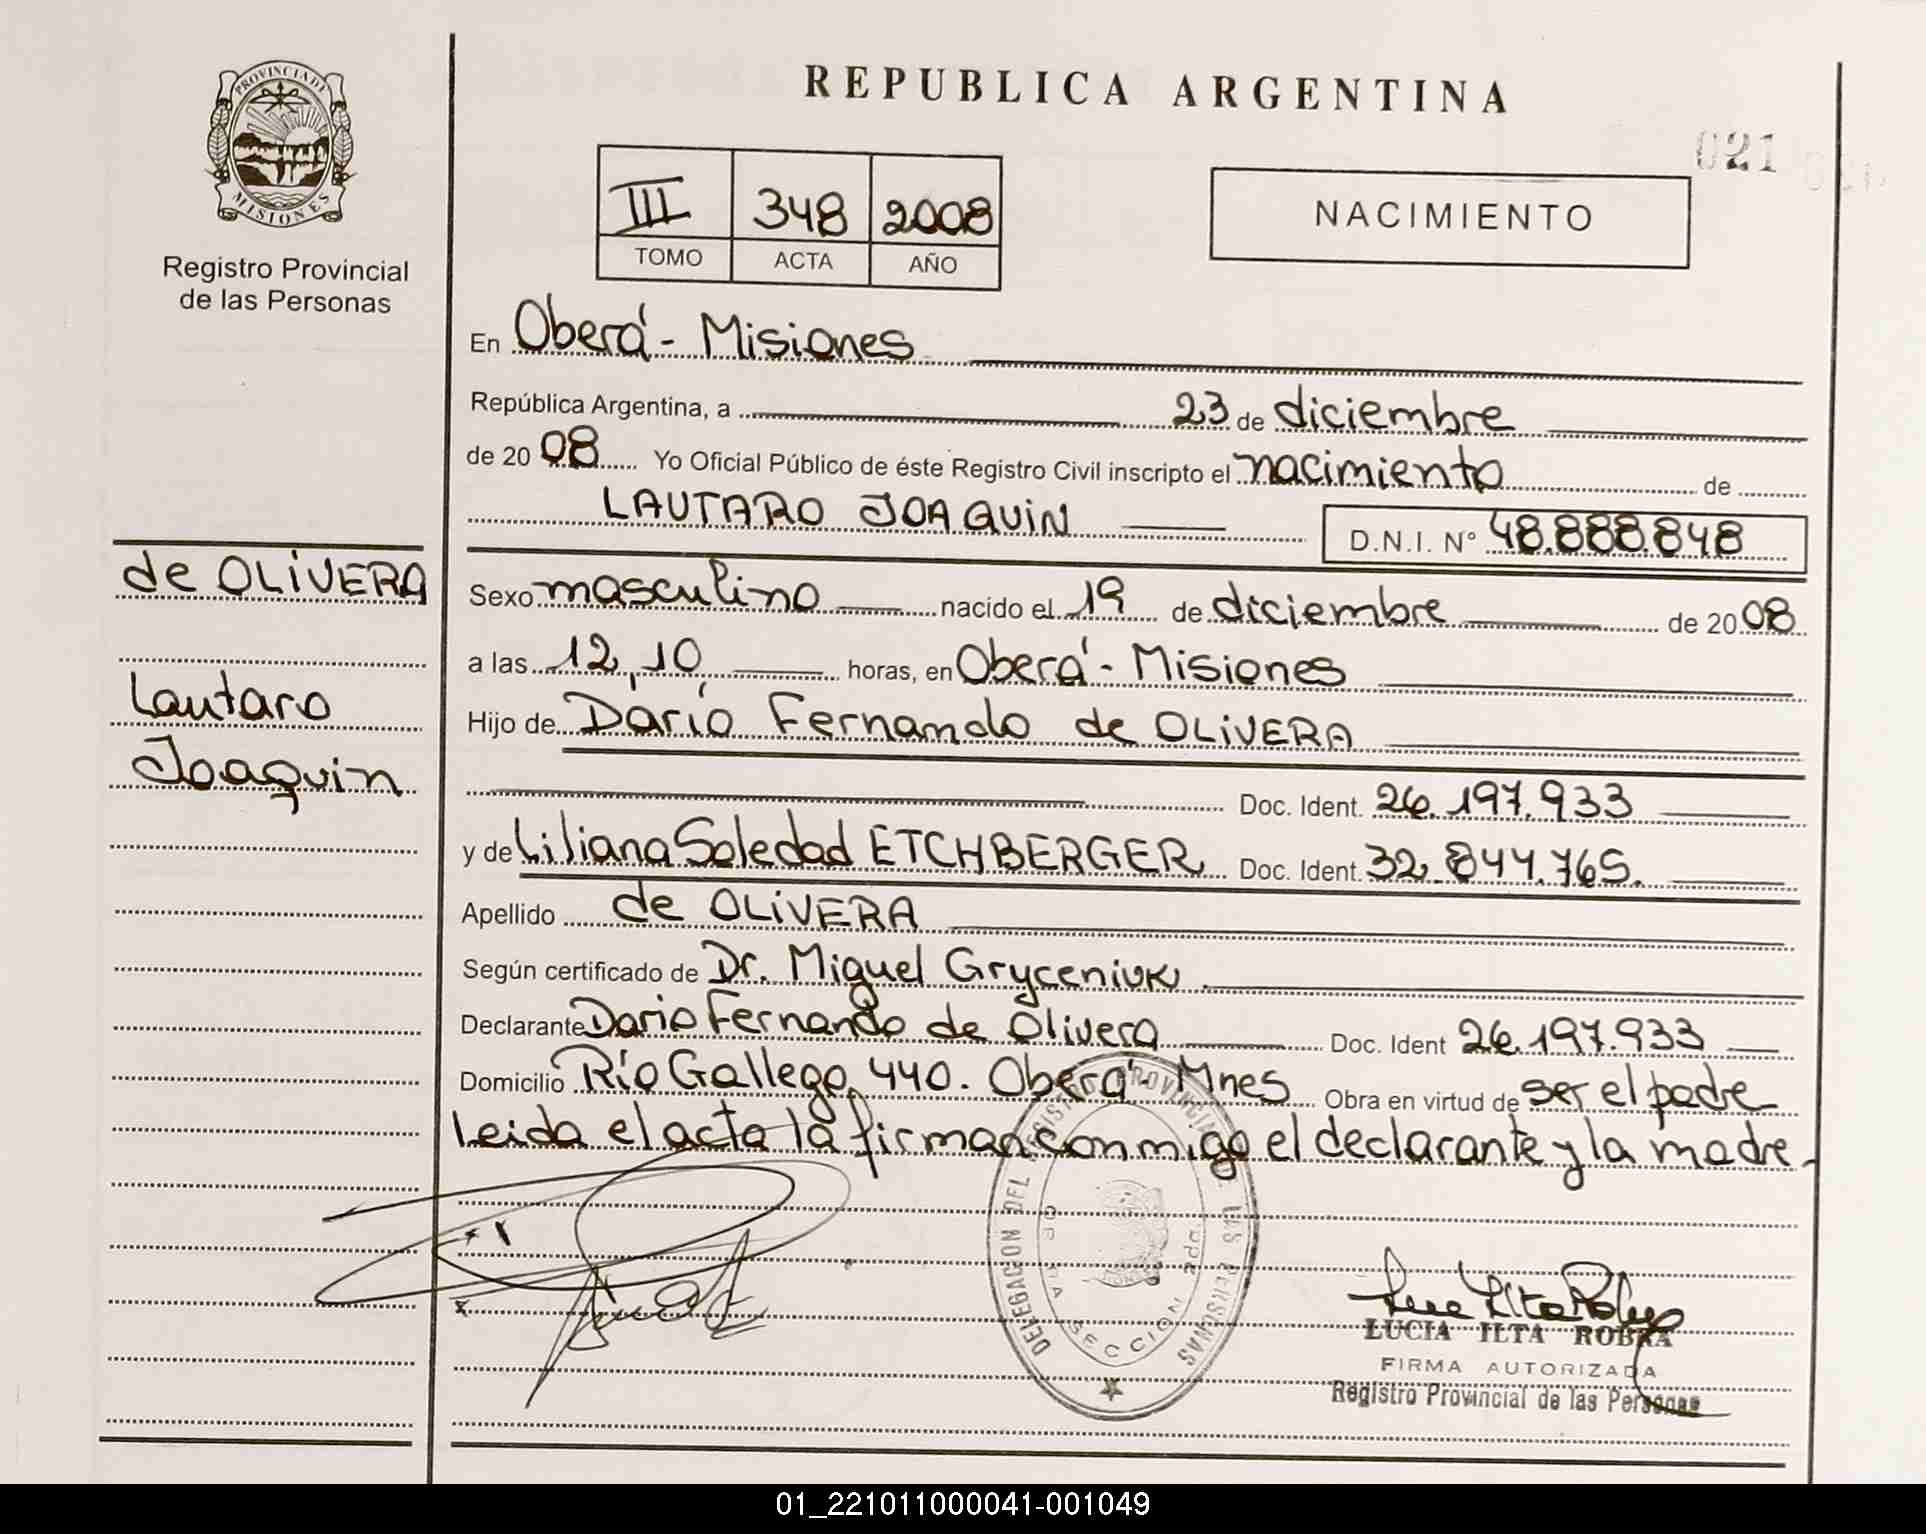 PROVINCIA DE
MISIONES
Registro Provincial
de las Personas
de OLIVERA
Lautaro
Joaquin
REPUBLICA ARGENTINA
021
III 348 2008
TOMO ACTA AÑO
NACIMIENTO
En Oberá - Misiones
República Argentina, a 23 de diciembre
de 20 08 Yo Oficial Público de éste Registro Civil inscripto el nacimiento de
LAUTARO JOAQUIN D.N.I. N° 48.888.848
Sexo masculino nacido el 19 de diciembre de 20 08
a las 12,10 horas, en Oberá - Misiones
Hijo de Darío Fernando de OLIVERA
Doc. Ident. 26.197.933
y de Liliana Soledad ETCHBERGER Doc. Ident. 32.844.765.
Apellido de OLIVERA
Según certificado de Dr. Miguel Gryceniuk
Declarante Dario Fernando de Olivera Doc. Ident 26.197.933
Domicilio Río Gallego 440. Oberá - Mnes Obra en virtud de ser el padre
Leida el acta la firman conmigo el declarante y la madre.
DELEGACION DEL REGISTRO PROVINCIAL DE LAS PERSONAS
SECCION 2da.
LUCIA ILTA ROBRA
FIRMA AUTORIZADA
Registro Provincial de las Personas
01_221011000041-001049